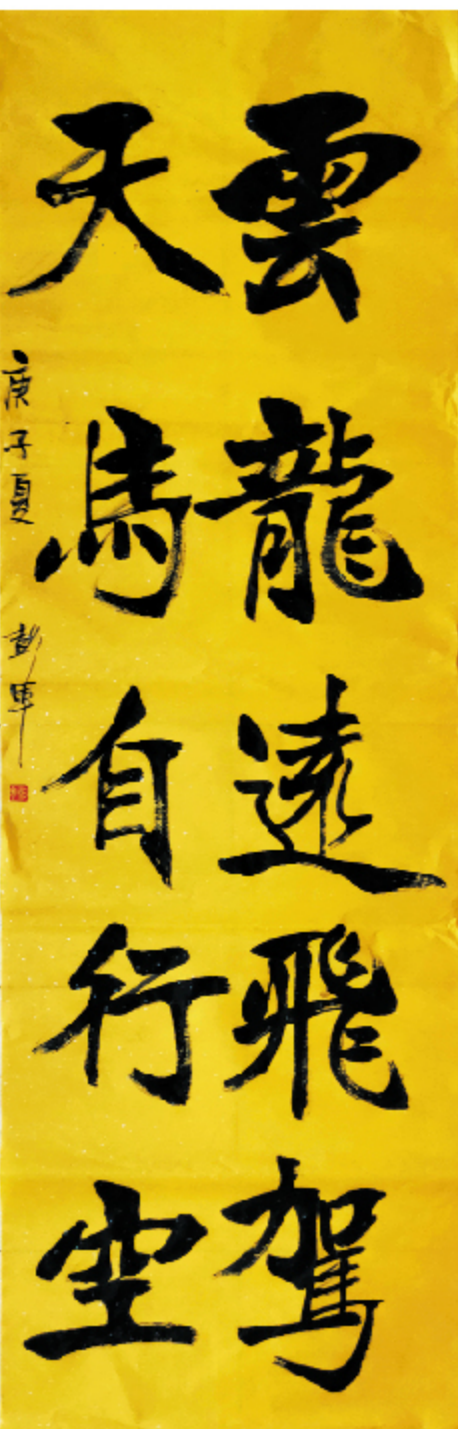 雲龍遠飛駕
天馬自行空
庚子夏 彭軍